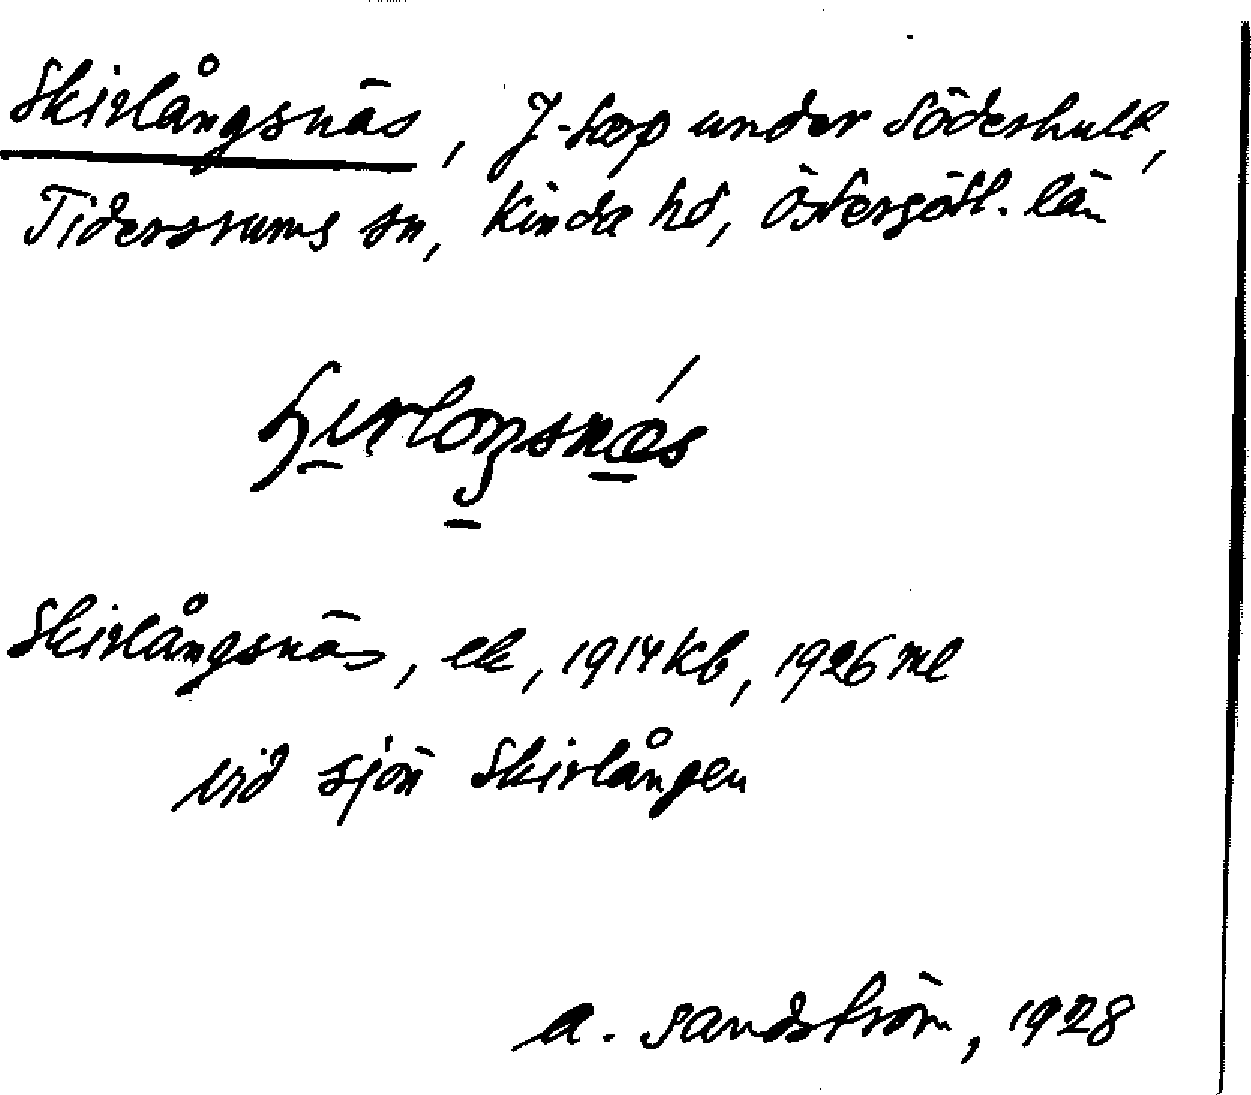 Skirlångsnäs, J-torp under Söderhult,
Tidersrums sn, Kinda hd, Östergötl. län
Skirlångsnäs, ek, 1914 Kb, 1926 Ml
vid sjön Skirlången
A. Sandström, 1928